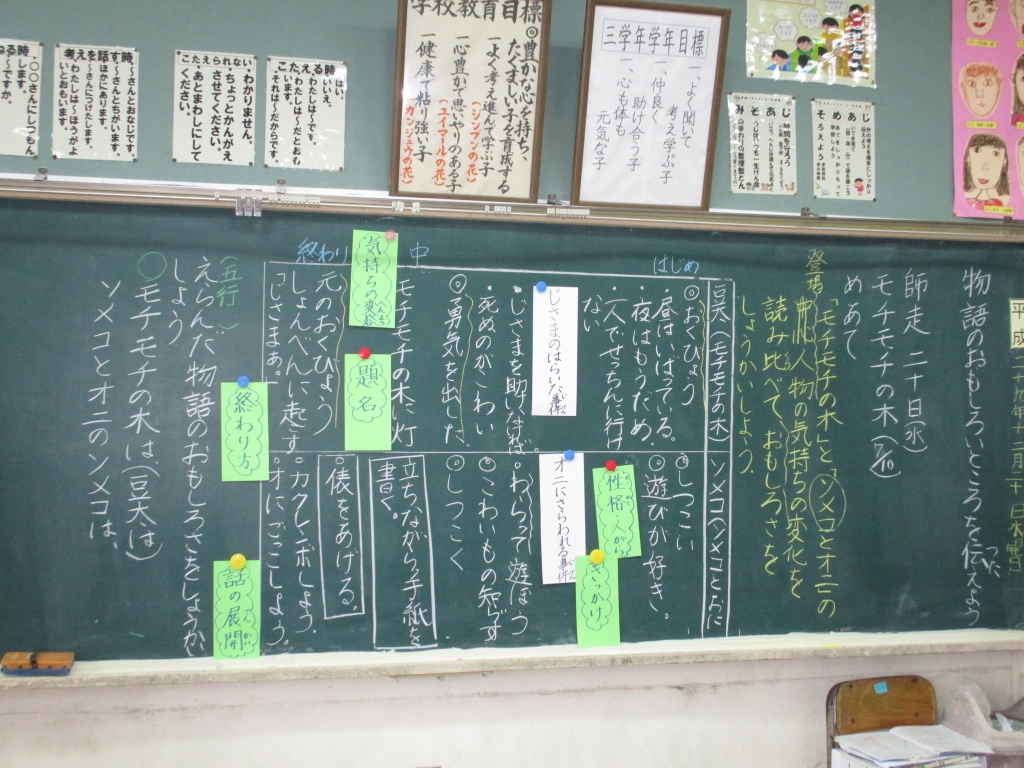 学校教育目標
◎豊かな心を持ち、
たくましい子を育成する
一よく考え進んで学ぶ子
(シンダンの花)
一心豊かで思いやりのある子
(ユイマールの花)
一健康で粘り強い子
(ガンジュウの花)
三学年学年目標
一、よく聞いて
考え学ぶ子
一、仲良く
助け合う子
一、心も体も
元気な子
はい。
いいえ。
こたえる時
わたしは~です。
わたしは~だとおも
います。
それは~だからです。
こたえられない時
わかりません。
ちょっとかんがえ
させてください。
あとまわしにして
ください。
~さんとおなじです。
~さんとちがいます。
ほかにあります。
~さんにつけたします。
わたしは~のほうがよ
いとおもいます。
○○さんにしつもん
します。
~ですか。
物語のおもしろいところを伝えよう
師走 二十日(水)
モチモチの木
めあて
登場
「モチモチの木」と「ソメコとオニ」の
中心人物の気持ちの変化を
読み比べて、おもしろさを
しょうかいしよう。
はじめ
中
終わり
豆太(モチモチの木)
◎おくびょう
・昼はいばっている。
・夜はもうだめ。
・一人でせっちんに行け
ない
じさまのはらいた事件
・じさまを助けなければ。
・死ぬのがこわい
◎勇気を出した
モチモチの木に灯
気持ちの変容
題名
元のおくびょう
しょんべんに起す
「じさまぁ。」
ソメコ(ソメコとおに)
◎しつこい
◎遊びが好き。
性格・人がら
きっかけ
オニにさらわれる事件
・わらって遊ぼう
◎こわいもの知らず
◎しつこく
立ちながら手紙を
書く。
俵をあげる。
・カクレンボしよう。
・オニごっこしよう。
終わり方
話の展開
(五行)
えらんだ物語のおもしろさをしょうかい
しよう
○モチモチの木は、(豆太は)
ソメコとオニのソメコは、